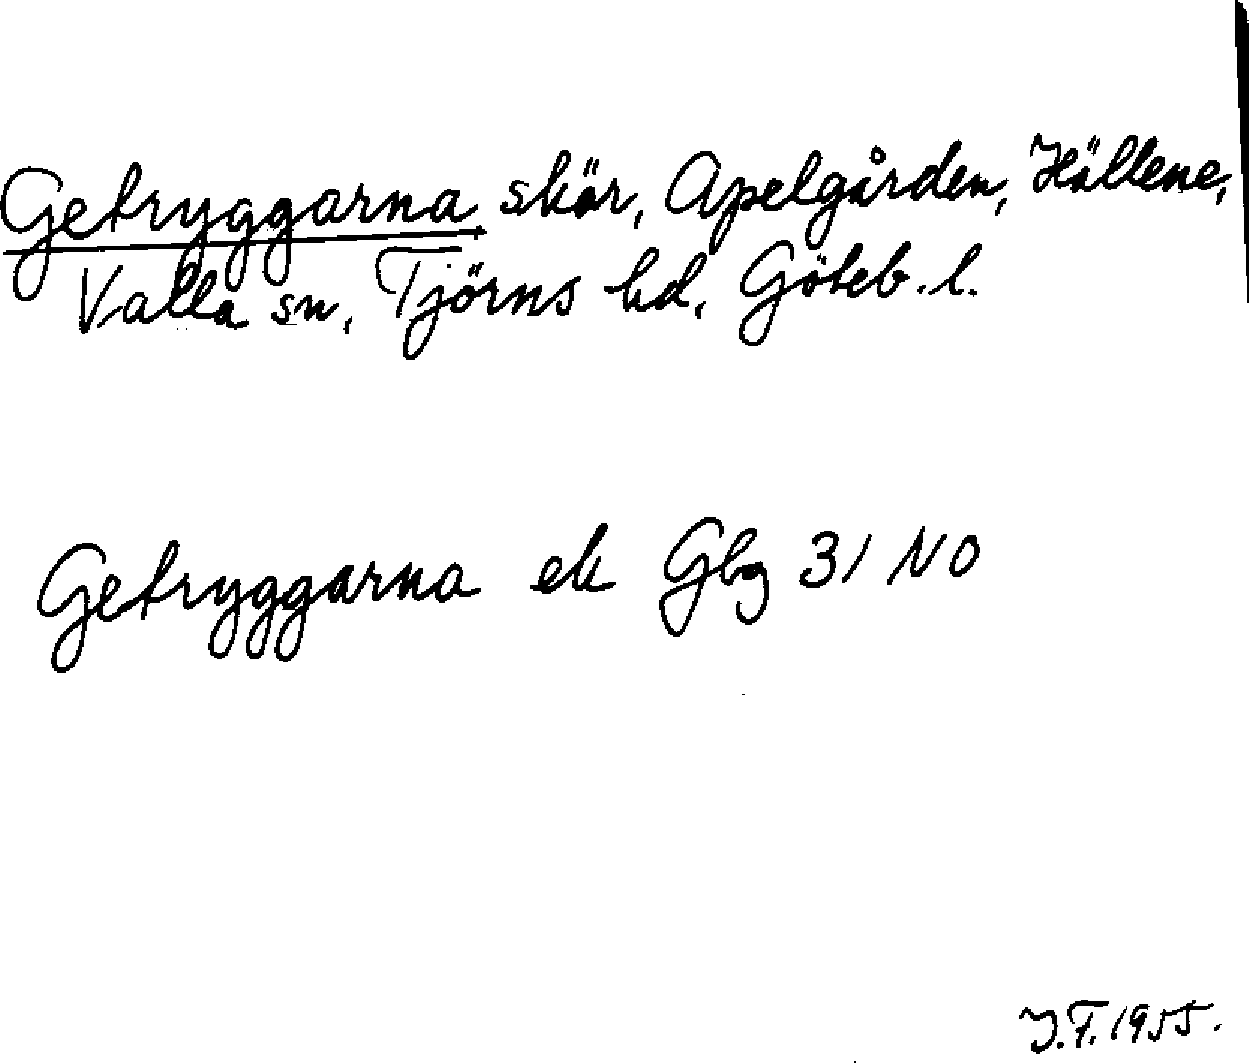 Getryggarna, skär, Apelgården, Hällene,
Valla sn, Tjörns hd, Göteb. l.
Getryggarna ek Gbg 31 NO
J.F. 1955.